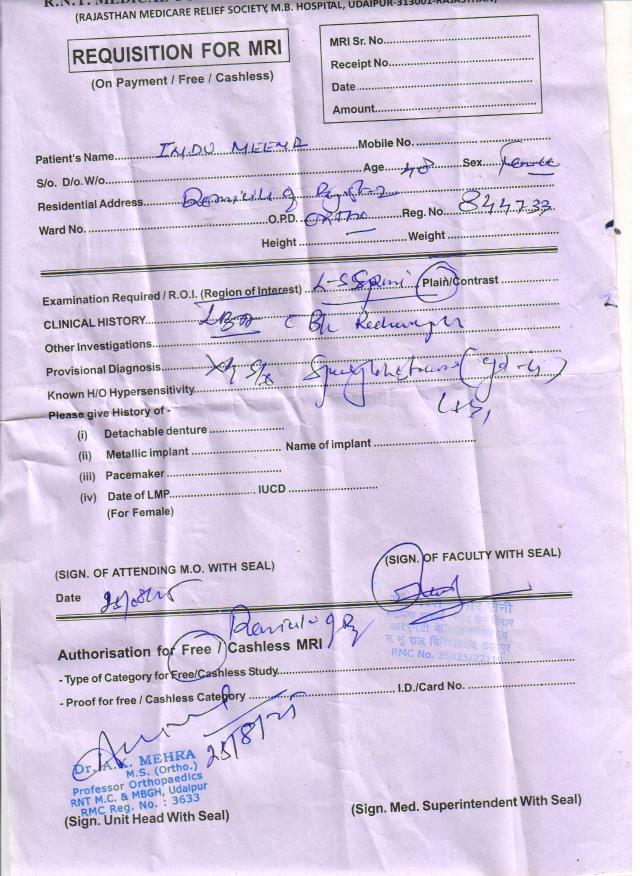 R.N.T. MEDICAL
(RAJASTHAN MEDICARE RELIEF SOCIETY, M.B. HOSPITAL, UDAIPUR-313001-RAJASTHAN)
REQUISITION FOR MRI
(On Payment / Free / Cashless)
MRI Sr. No.
Receipt No.
Date
Amount
Patient's Name INDU MEENA Mobile No.
S/o. D/o. W/o Age 48 Sex Female
Residential Address Domicile of Rajasthan
Ward No. O.P.D. ORTHO Reg. No. 844733
Height Weight
Examination Required / R.O.I. (Region of Interest) L-S Spine Plain/Contrast
CLINICAL HISTORY LBA c B/L Radiculopathy
Other Investigations
Provisional Diagnosis
Known H/O Hypersensitivity
Please give History of -
(i) Detachable denture
(ii) Metallic implant Name of implant
(iii) Pacemaker
(iv) Date of LMP IUCD
(For Female)
(SIGN. OF ATTENDING M.O. WITH SEAL)
(SIGN. OF FACULTY WITH SEAL)
Date 25/08/25
RMC No.
Authorisation for Free / Cashless MRI
- Type of Category for Free/Cashless Study
- Proof for free / Cashless Category I.D./Card No.
25/8/25
Dr. A.K. MEHRA
M.S. (Ortho.)
Professor Orthopaedics
RNT M.C. & MBGH, Udaipur
RMC Reg. No. : 3633
(Sign. Unit Head With Seal)
(Sign. Med. Superintendent With Seal)